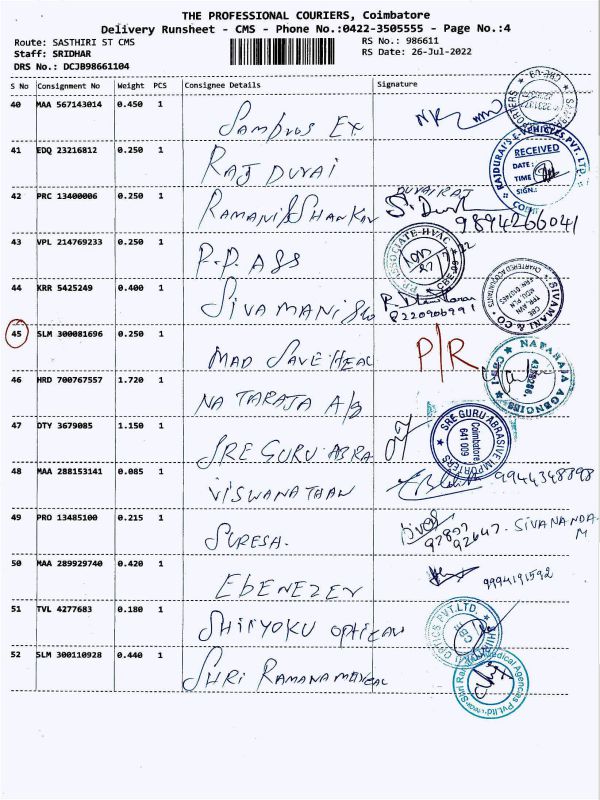 THE PROFESSIONAL COURIERS, Coimbatore
Delivery Runsheet - CMS - Phone No.:0422-3505555 - Page No.:4
Route: SASTHIRI ST CMS
RS No.: 986611
Staff: SRIDHAR
RS Date: 26-Jul-2022
DRS No.: DCJB98661104
S No Consignment No Weight PCS Consignee Details Signature
40 MAA 567143014 0.450 1
41 EDQ 23216812 0.250 1 RAJ DURAI
RAJDURAI'S E-VEHICLES PVT. LTD.
RECEIVED
DATE:
TIME
SIGN.:
42 PRC 13400006 0.250 1 RAMANI & SHANKAR
DUVAIRAJ
9894266041
43 VPL 214769233 0.250 1 P.P ASS
P.P ASSOCIATE-HVAC
44 KRR 5425249 0.400 1 SIVAMANI
8220906991
SIVAMANI & CO
CHARTERED ACCOUNTANTS
45 SLM 300081696 0.250 1 MAD SAVE HEAL P/R
46 HRD 700767557 1.720 1 NATARAJA A/g
NATARAJA AGENCIES
47 DTY 3679085 1.150 1 SRE GURU ABRA
SRE GURU ABRASIVE IMPORTERS
Coimbatore
641 009
48 MAA 288153141 0.085 1 VISWANATHAN
9944348898
49 PRO 13485100 0.215 1 SURESH.
97877
92647. SIVANANDA
M
50 MAA 289929740 0.420 1 EBENEZER
9994191592
51 TVL 4277683 0.180 1 SHRIYOKU OPTICAN
OPTICS PVT.LTD.
52 SLM 300110928 0.440 1 SHRI RAMANA MEDICAL
Medical Agencies Pvt.Ltd